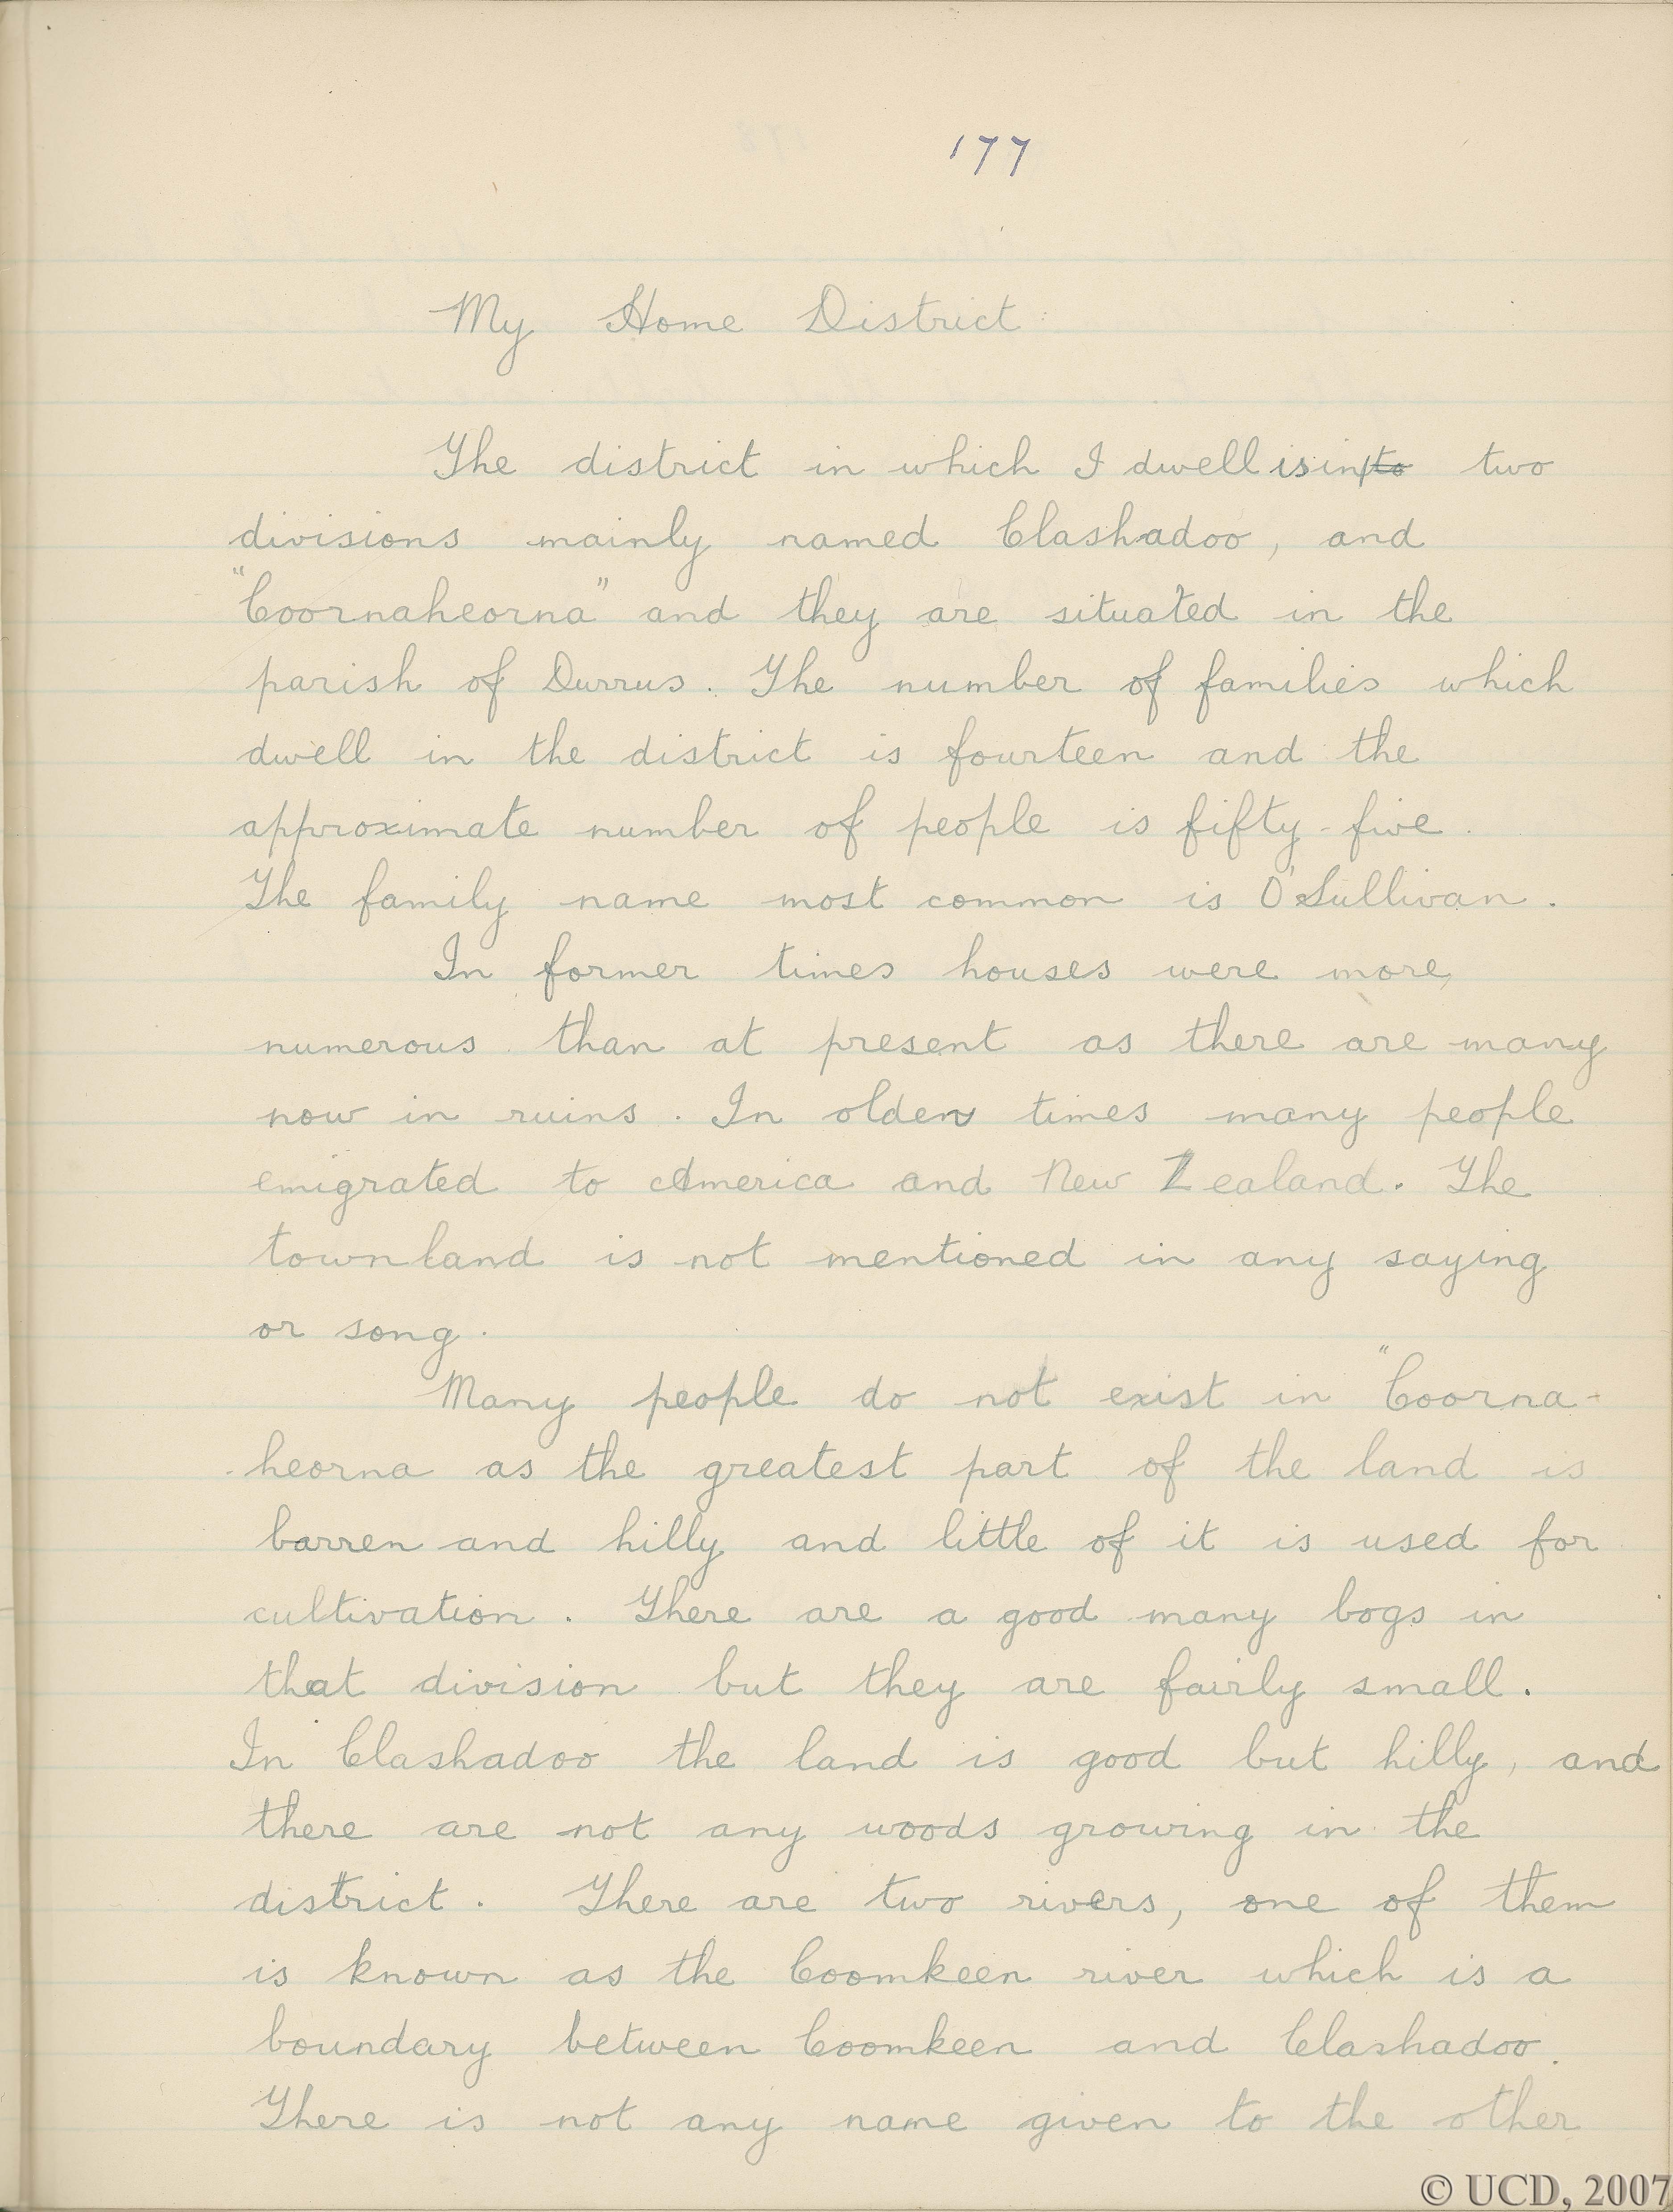 177
My Home District
The district in which I dwell is in to two
divisions mainly named Clashadoo, and
"Coornaheorna" and they are situated in the
parish of Durrus. The number of families which
dwell in the district is fourteen and the
approximate number of people is fifty-five.
The family name most common is O'Sullivan.
In former times houses were more
numerous than at present as there are many
now in ruins. In olden times many people
emigrated to America and New Zealand. The
townland is not mentioned in any saying
or song.
Many people do not exist in "Coorna-
-heorna as the greatest part of the land is
barren and hilly and little of it is used for
cultivation. There are a good many bogs in
that division but they are fairly small.
In Clashadoo the land is good but hilly, and
there are not any woods growing in the
district. There are two rivers, one of them
is known as the Coomkeen river which is a
boundary between Coomkeen and Clashadoo.
There is not any name given to the other
© UCD, 2007